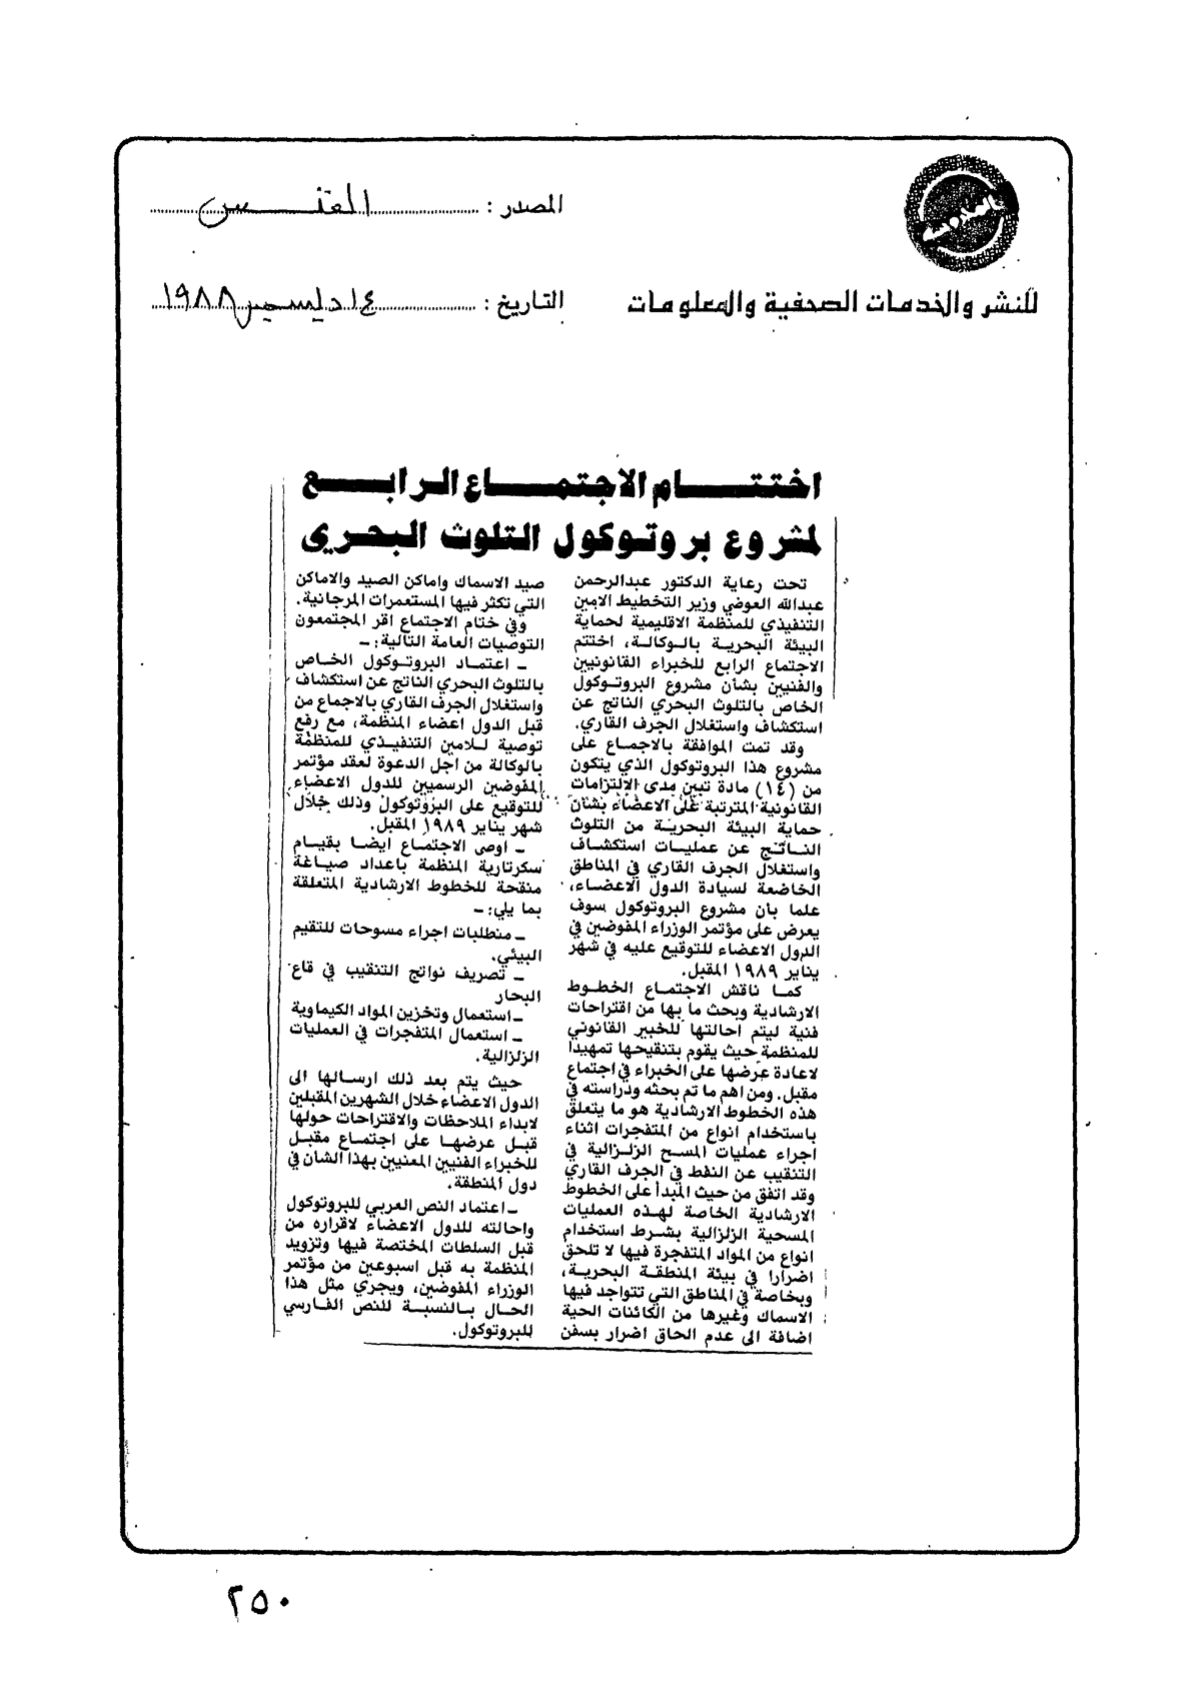 المصدر : القبس
للنشر والخدمات الصحفية والمعلومات
التاريخ : ١٤ ديسمبر ١٩٨٨
اختتام الاجتماع الرابع
لمشروع بروتوكول التلوث البحري
تحت رعاية الدكتور عبدالرحمن
عبدالله العوضي وزير التخطيط الامين
التنفيذي للمنظمة الاقليمية لحماية
البيئة البحرية بالوكالة، اختتم
الاجتماع الرابع للخبراء القانونيين
والفنيين بشأن مشروع البروتوكول
الخاص بالتلوث البحري الناتج عن
استكشاف واستغلال الجرف القاري.
وقد تمت الموافقة بالاجماع على
مشروع هذا البروتوكول الذي يتكون
من (١٤) مادة تبين مدى الالتزامات
القانونية المترتبة على الاعضاء بشأن
حماية البيئة البحرية من التلوث
الناتج عن عمليات استكشاف
واستغلال الجرف القاري في المناطق
الخاضعة لسيادة الدول الاعضاء،
علما بأن مشروع البروتوكول سوف
يعرض على مؤتمر الوزراء المفوضين في
الدول الاعضاء للتوقيع عليه في شهر
يناير ١٩٨٩ المقبل.
كما ناقش الاجتماع الخطوط
الارشادية وبحث ما بها من اقتراحات
فنية ليتم احالتها للخبير القانوني
للمنظمة حيث يقوم بتنقيحها تمهيدا
لاعادة عرضها على الخبراء في اجتماع
مقبل. ومن اهم ما تم بحثه ودراسته في
هذه الخطوط الارشادية هو ما يتعلق
باستخدام انواع من المتفجرات اثناء
اجراء عمليات المسح الزلزالية في
التنقيب عن النفط في الجرف القاري
وقد اتفق من حيث المبدأ على الخطوط
الارشادية الخاصة لهذه العمليات
المسحية الزلزالية بشرط استخدام
انواع من المواد المتفجرة فيها لا تلحق
اضرارا في بيئة المنطقة البحرية،
وبخاصة في المناطق التي تتواجد فيها
الاسماك وغيرها من الكائنات الحية
اضافة الى عدم الحاق اضرار بسفن
صيد الاسماك واماكن الصيد والاماكن
التي تكثر فيها المستعمرات المرجانية.
وفي ختام الاجتماع اقر المجتمعون
التوصيات العامة التالية: ــ
ــ اعتماد البروتوكول الخاص
بالتلوث البحري الناتج عن استكشاف
واستغلال الجرف القاري بالاجماع من
قبل الدول اعضاء المنظمة، مع رفع
توصية للامين التنفيذي للمنظمة
بالوكالة من اجل الدعوة لعقد مؤتمر
المفوضين الرسميين للدول الاعضاء
للتوقيع على البروتوكول وذلك خلال
شهر يناير ١٩٨٩ المقبل.
ــ اوصى الاجتماع ايضا بقيام
سكرتارية المنظمة باعداد صياغة
منقحة للخطوط الارشادية المتعلقة
بما يلي: ــ
ــ متطلبات اجراء مسوحات للتقيم
البيئي.
ــ تصريف نواتج التنقيب في قاع
البحار
ــ استعمال وتخزين المواد الكيماوية
ــ استعمال المتفجرات في العمليات
الزلزالية.
حيث يتم بعد ذلك ارسالها الى
الدول الاعضاء خلال الشهرين المقبلين
لابداء الملاحظات والاقتراحات حولها
قبل عرضها على اجتماع مقبل
للخبراء الفنيين المعنيين بهذا الشأن في
دول المنطقة.
ــ اعتماد النص العربي للبروتوكول
واحالته للدول الاعضاء لاقراره من
قبل السلطات المختصة فيها وتزويد
المنظمة به قبل اسبوعين من مؤتمر
الوزراء المفوضين، ويجري مثل هذا
الحال بالنسبة للنص الفارسي
للبروتوكول.
٢٥٠